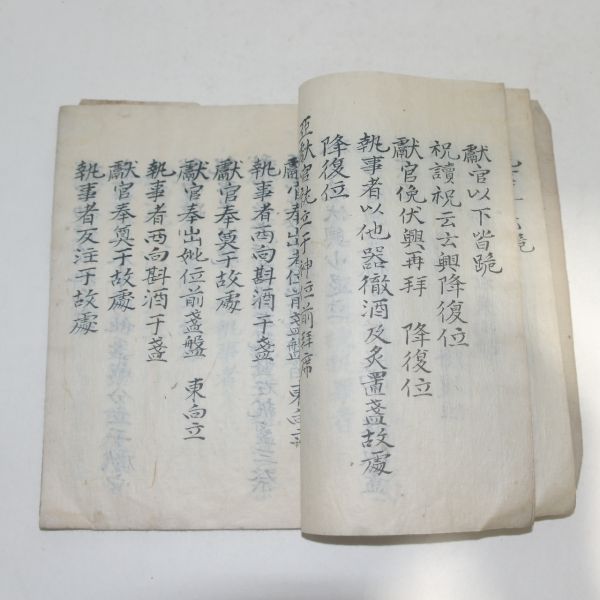 獻官以下皆跪
祝讀祝云云興降復位
獻官俛伏興再拜 降復位
執事者以他器徹酒及炙置盞故處
降復位
亞獻官詵立于神位前拜席
獻官奉出考位前盞盤 東向立
執事者西向斟酒于盞
獻官奉奠于故處
獻官奉出妣位前盞盤 東向立
執事者西向斟酒于盞
獻官奉奠于故處
執事者反注于故處